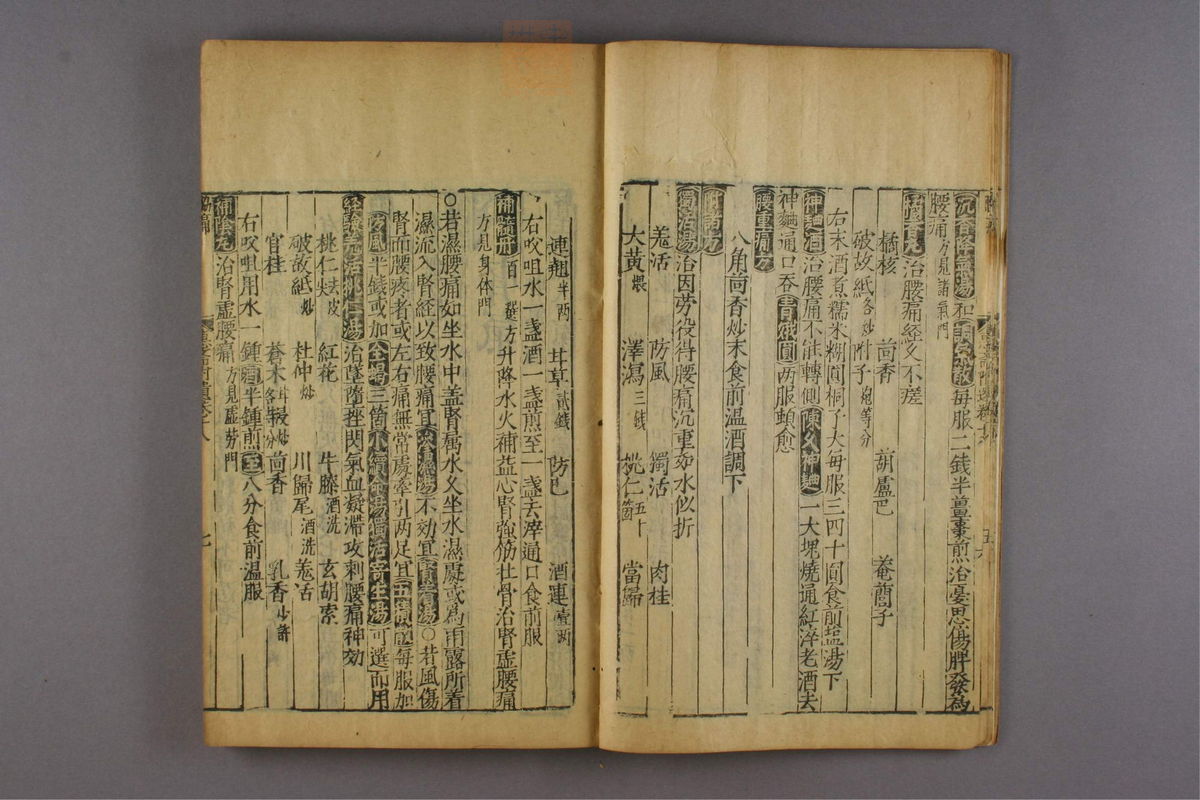 沉香降氣湯和調氣散每服二錢半薑棗煎治憂思傷脾發為
腰痛方見諸氣門
茴香丸治腰痛經久不瘥
橘核 茴香 葫蘆巴 菴䕡子
破故紙各炒 附子炮等分
右末酒煮糯米糊圓桐子大每服三四十圓食前塩湯下
神麯酒治腰痛不能轉側陳久神麯一大塊燒通紅淬老酒去
神麯通口吞青娥圓兩服頓愈
腰重痛方
八角茴香炒末食前温酒調下
獨活湯治因劳役得腰痛沉重如水似折
羌活 防風 獨活 肉桂
大黃煨 澤瀉三錢 桃仁五十箇 當歸
連翹半兩 甘草貳錢 防己 酒連壹兩
右㕮咀水一盞酒一盞煎至一盞去滓通口食前服
補髓丹百一選方升降水火補益心腎強筋壯骨治腎虛腰痛
方見身体門
○若濕腰痛如坐水中盖腎属水久坐水濕處或為雨露所着
濕流入腎經以致腰痛宜滲濕湯不効宜腎着湯○若風傷
腎而腰疼者或左右痛無常處牽引两足宜五積散每服加
防風半錢或加全蝎三箇小續命湯獨活寄生湯可選而用
経驗羌活桃仁湯治墜墮挫閃氣血凝滯攻刺腰痛神効
桃仁去皮尖 紅花 牛膝酒洗 玄胡索
破故紙炒 杜仲炒 川歸尾酒洗 羌活
官桂 蒼术 茴香 乳香少許
右㕮咀用水一鍾酒半鍾煎至八分食前温服
補陰丸治腎虛腰痛方見虛劳門